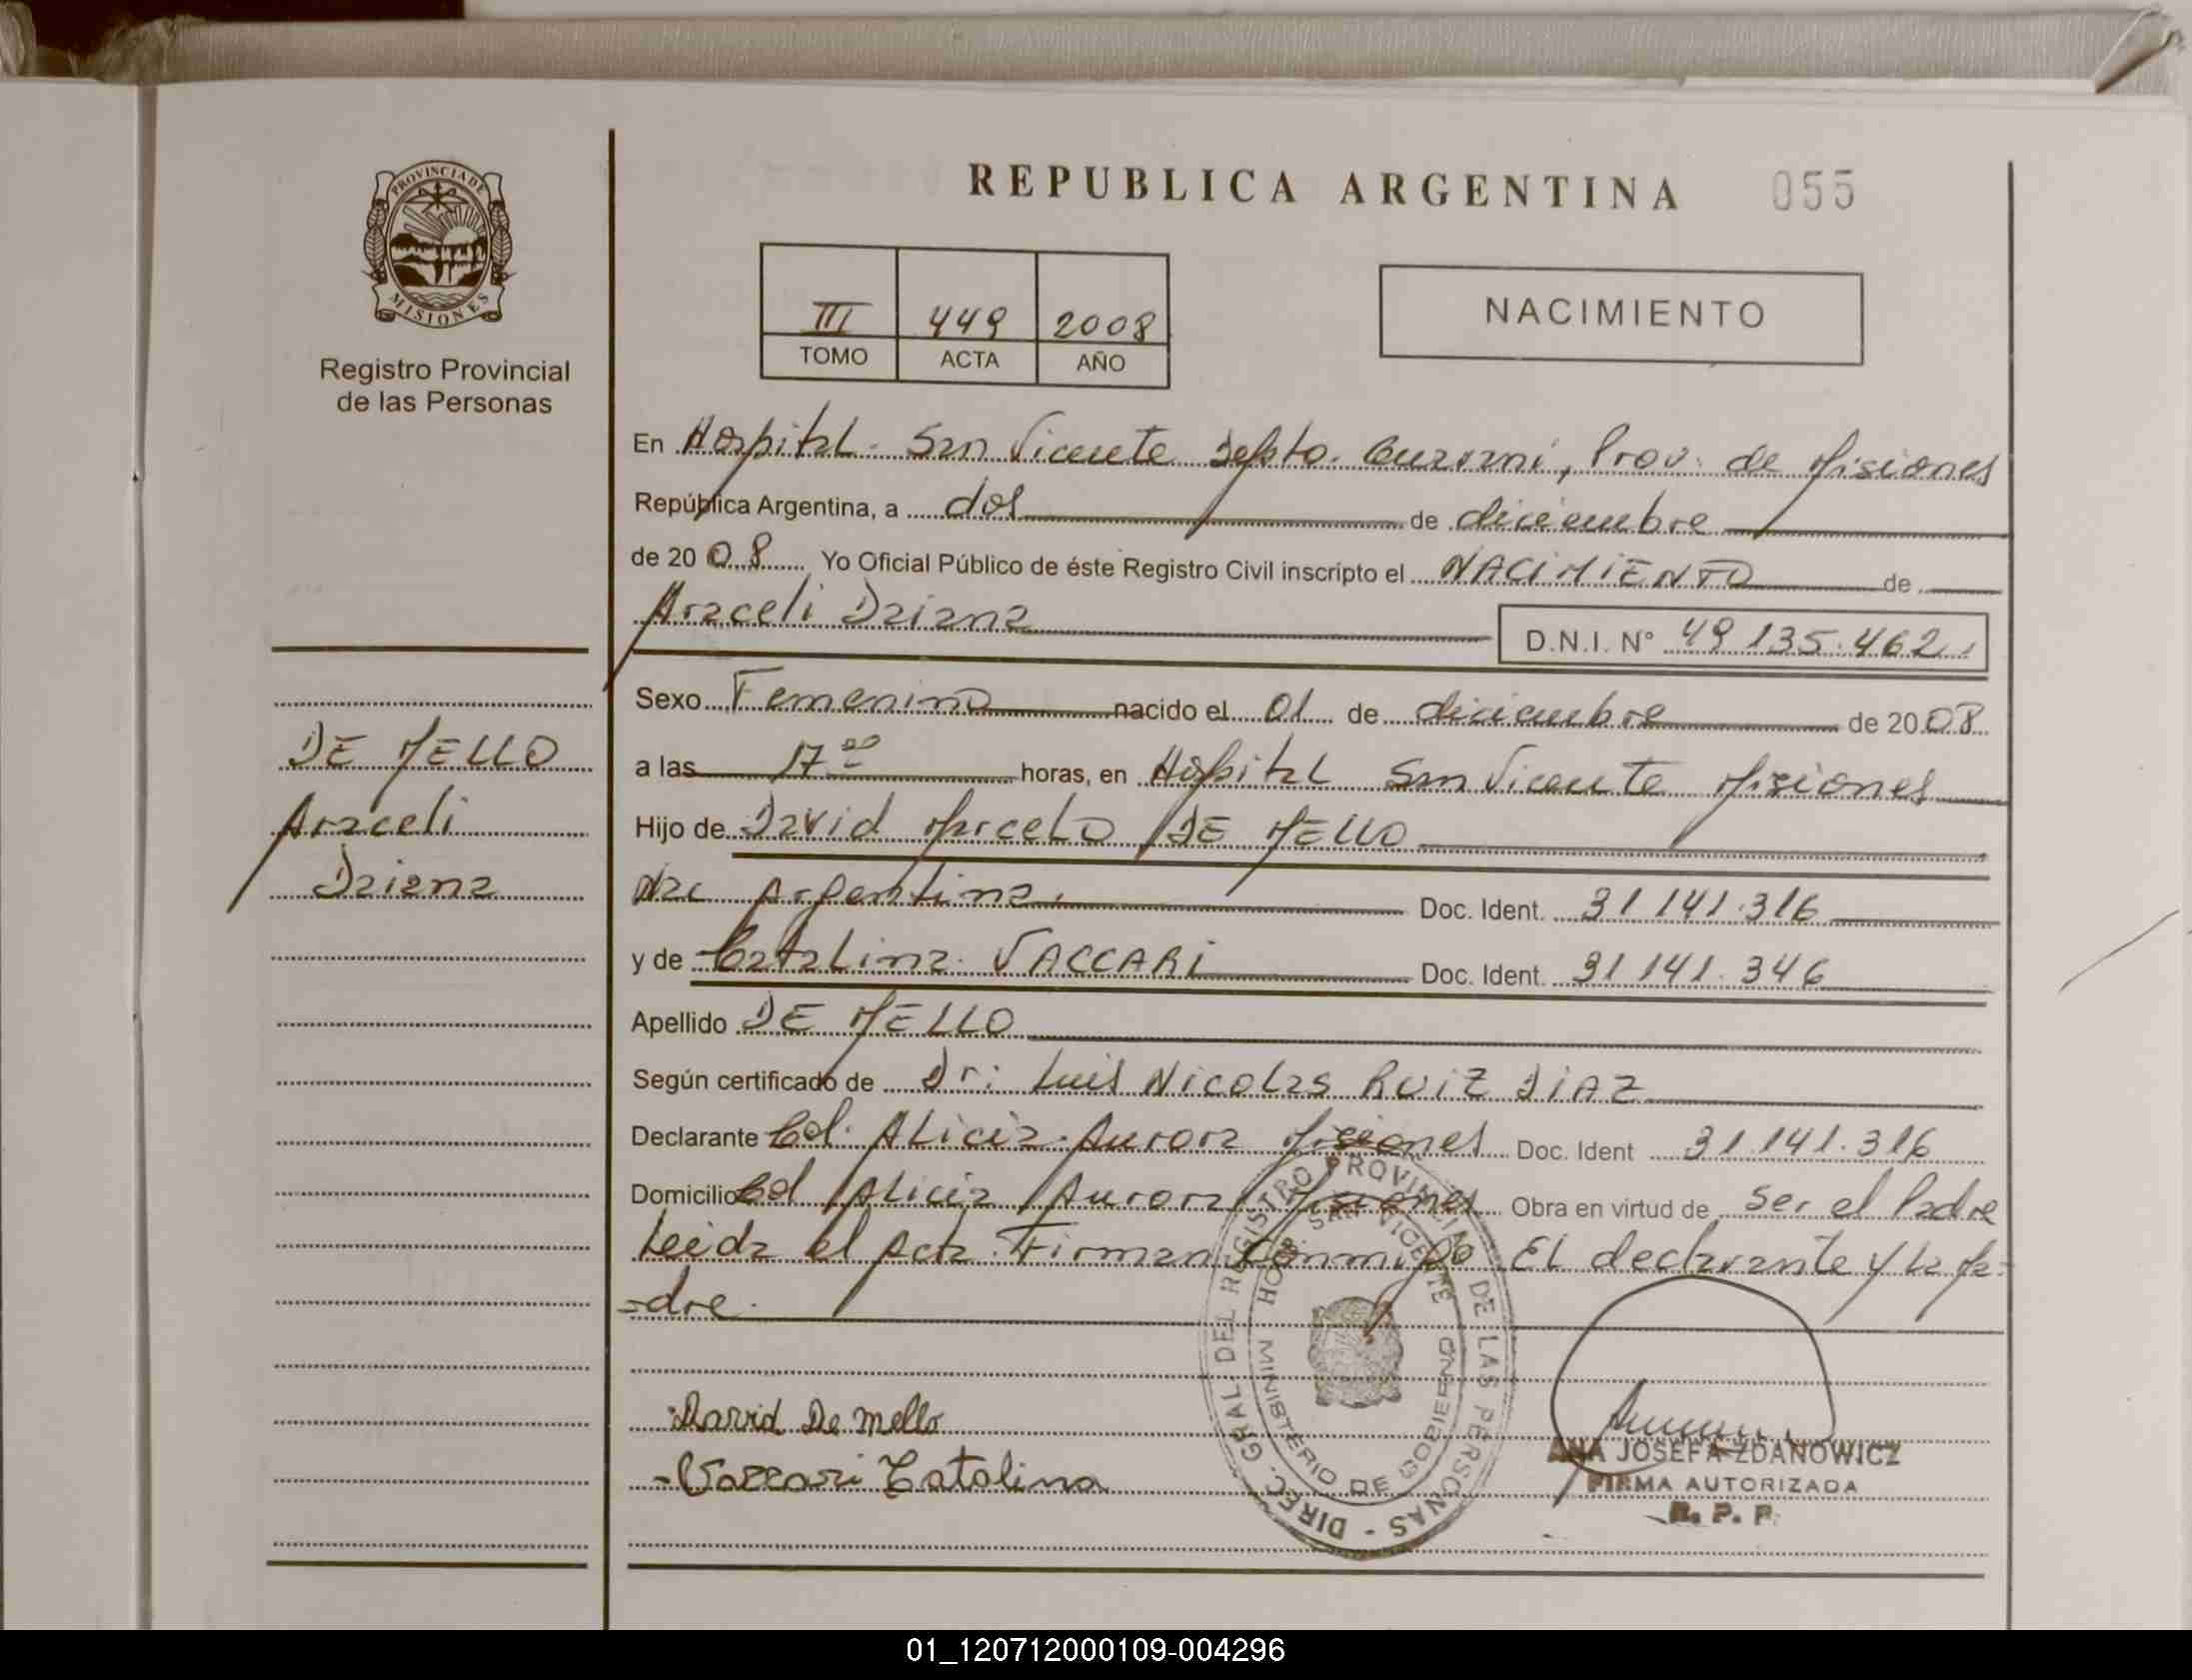 PROVINCIA DE
MISIONES
Registro Provincial
de las Personas
DE MELLO
Araceli
Daiana
REPUBLICA ARGENTINA 055
III 449 2008
TOMO ACTA AÑO
NACIMIENTO
En Hospital San Vicente Depto. Guarani, Prov. de Misiones
República Argentina, a dos de diciembre
de 2008 Yo Oficial Público de éste Registro Civil inscripto el NACIMIENTO de
Araceli Daiana
D.N.I. Nº 49 135.462
Sexo Femenino nacido el 01 de diciembre de 2008
a las 17 00 horas, en Hospital San Vicente Misiones
Hijo de David Marcelo DE MELLO
Nac Argentina, Doc. Ident. 31 141.316
y de Catalina VACCARI Doc. Ident. 31 141.346
Apellido DE MELLO
Según certificado de Dr: Luis Nicolas RUIZ DIAZ
Declarante Col. Alicia Aurora Misiones Doc. Ident 31.141.316
Domicilio Col Alicia Aurora Misiones Obra en virtud de Ser el Padre
Leida el Acta Firman Conmigo El declarante y La Ma-
-dre.
DIREC. GRAL DEL REGISTRO PROVINCIAL DE LAS PERSONAS -
HOSP SAN VICENTE
MINISTERIO DE GOBIERNO
David De mello
Vaccari Catalina
ANA JOSEFA ZDANOWICZ
FIRMA AUTORIZADA
R. P. P.
01_120712000109-004296